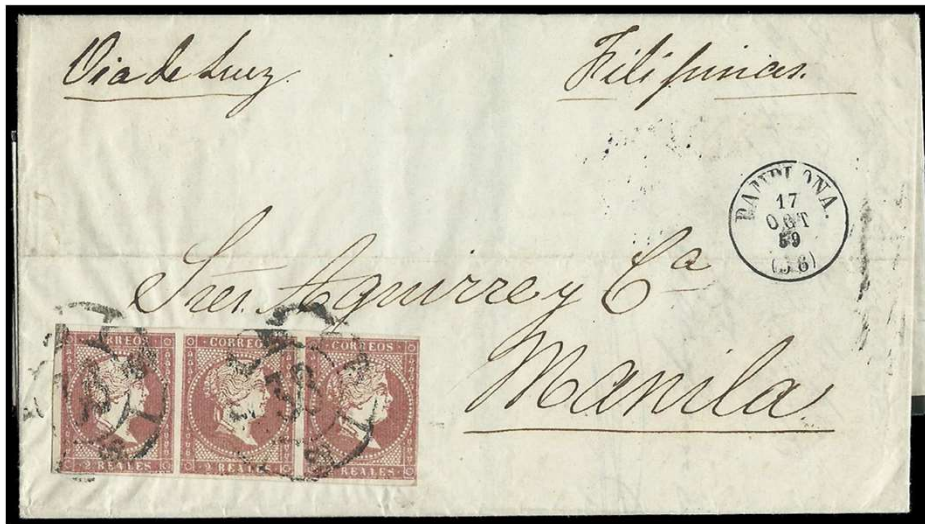 Via de Suez.
Filipinas.
PAMPLONA.
17
OCT
59
(36)
Sres. Aguirre y Cª
Manila.
CORREOS CORREOS CORREOS
2 REALES 2 REALES 2 REALES